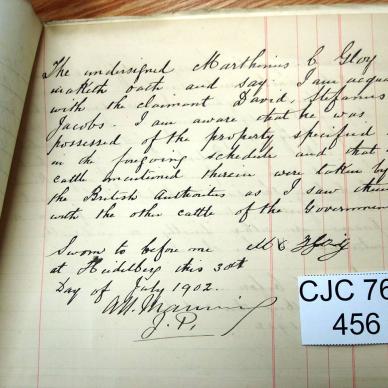 The undersigned Marthinus C Gloy
maketh oath and say. I am acqua
with the claimant David Stefanus
Jacobs. I am aware that he was
possessed of the property specified
in the foregoing schedule and that
cattle mentioned therein were taken by
the British Authorities as I saw them
with the other cattle of the Governmen
Sworn to before me M C
at Heidelberg this 30th
Day of July 1902.
J. P.
CJC 76
456